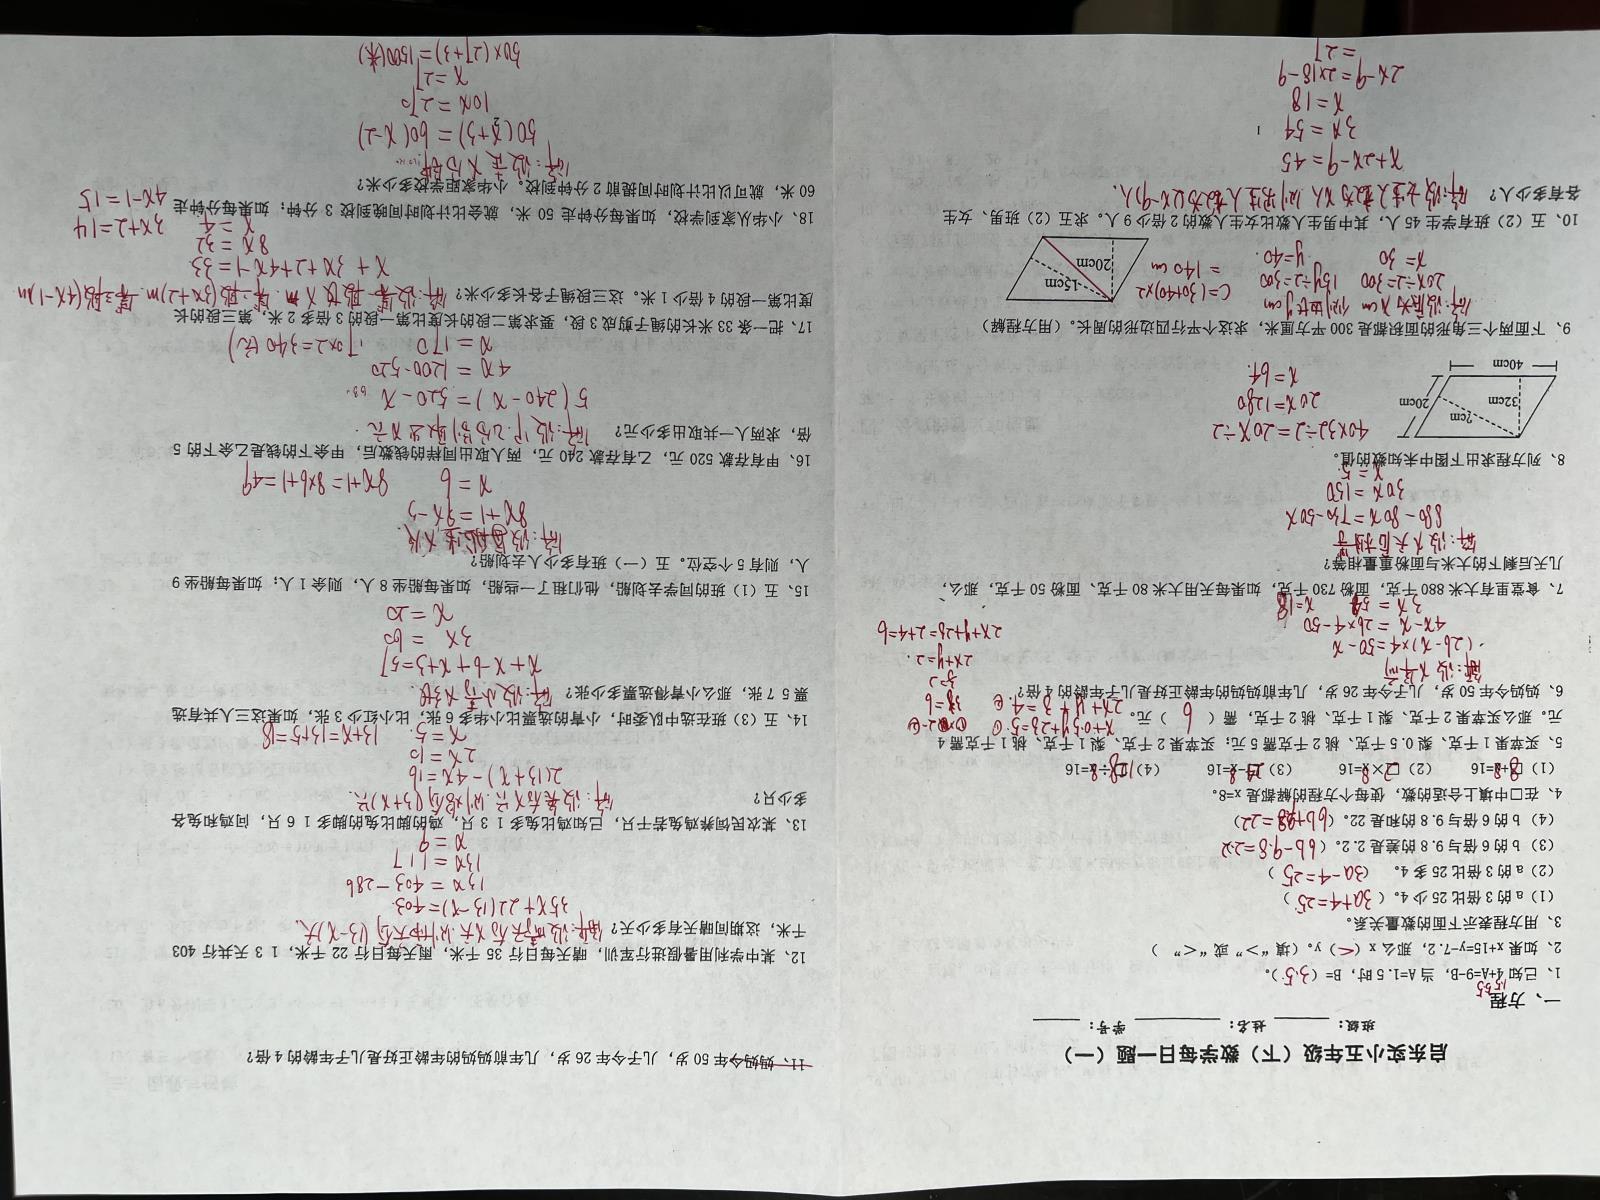 启东实小五年级（下）数学每日一题（一）
班级：________ 姓名：________ 学号：________
一、方程
1、已知 4+A=9-B，当 A=1.5 时，B=（3.5）。
2、如果 x+15=y-7.2，那么 x（<）y。（填“>”或“<”）
3、用方程表示下面的数量关系。
（1）a 的 3 倍比 25 少 4。（3a+4=25）
（2）a 的 3 倍比 25 多 4。（3a-4=25）
（3）b 的 6 倍与 9.8 的差是 2.2。（6b-9.8=2.2）
（4）b 的 6 倍与 9.8 的和是 22。（6b+9.8=22）
4、在□中填上合适的数，使每个方程的解都是 x=8。
（1）□+x=16 （2）□×x=16 （3）□-x=16 （4）□÷x=16
5、买苹果 1 千克、梨 0.5 千克、桃 2 千克需 5 元；买苹果 2 千克、梨 1 千克、桃 1 千克需 4
元。那么买苹果 2 千克、梨 1 千克、桃 2 千克，需（ 6 ）元。
x+0.5y+2z=5
2x+y+z=4
3z=6
z=2
2x+y=2
2x+y+2z=2+4=6
6、妈妈今年 50 岁，儿子今年 26 岁，几年前妈妈的年龄正好是儿子年龄的 4 倍？
解：设x年前
(26-x)×4=50-x
4x-x=26×4-50
3x=54 x=18
7、食堂里有大米 880 千克，面粉 730 千克，如果每天用大米 80 千克、面粉 50 千克，那么，
几天后剩下的大米与面粉重量相等？
解：设x天后相等
880-80x=730-50x
30x=150
x=5
8、列方程求出下图中未知数的值。
32cm
?cm
20cm
40cm
40×32÷2=20x÷2
20x=1280
x=64
9、下面两个三角形的面积都是 300 平方厘米，求这个平行四边形的周长。（用方程解）
15cm
20cm
解：设底为xcm 邻边长ycm
20x÷2=300 15y÷2=300
x=30 y=40
C=(30+40)×2
=140cm
10、五（2）班有学生 45 人，其中男生人数比女生人数的 2 倍少 9 人。求五（2）班男、女生
各有多少人？ 解：设女生人数为x人,则男生人数为(2x-9)人
x+2x-9=45
3x=54
x=18
2x-9=2×18-9
=27
11、妈妈今年 50 岁，儿子今年 26 岁，几年前妈妈的年龄正好是儿子年龄的 4 倍？
12、某中学利用暑假进行军训，晴天每日行 35 千米，雨天每日行 22 千米，13 天共行 403
千米，这期间晴天有多少天？
35x+22(13-x)=403
13x=403-286
13x=117
x=9
13、某农民饲养鸡兔若干只，已知鸡比兔多 13 只，鸡的脚比兔的脚多 16 只，问鸡和兔各
多少只？ 解：设兔有x只,则鸡有(13+x)只
2(13+x)-4x=16
2x=10
x=5 13+x=13+5=18
14、五（3）班在选中队委时，小青的选票比小华多 6 张，比小红少 3 张，如果这三人共有选
票 57 张，那么小青得选票多少张？ 解：设小青x张
x+x-6+x+3=57
3x=60
x=20
15、五（1）班的同学去划船，他们租了一些船，如果每船坐 8 人，则余 1 人；如果每船坐 9
人，则有 5 个空位。五（一）班有多少人去划船？
8x+1=9x-5
x=6 8x+1=8×6+1=49
16、甲有存款 520 元，乙有存款 240 元，两人取出同样的钱数后，甲余下的钱是乙余下的 5
倍，求两人一共取出多少元？ 解：设甲乙分别取出x元
5(240-x)=520-x
4x=1200-520
x=170 170×2=340(元)
17、把一条 33 米长的绳子剪成 3 段，要求第二段的长度比第一段的 3 倍多 2 米，第三段的长
度比第一段的 4 倍少 1 米。这三段绳子各长多少米？ 解：设第一段长xm.第二段(3x+2)m.第三段(4x-1)m
x+3x+2+4x-1=33
8x=32
x=4 3x+2=14
4x-1=15
18、小华从家到学校，如果每分钟走 50 米，就会比计划时间晚到校 3 分钟；如果每分钟走
60 米，就可以比计划时间提前 2 分钟到校。小华家距学校多少米？
50(x+3)=60(x-2)
10x=270
x=27
50×(27+3)=1500(米)